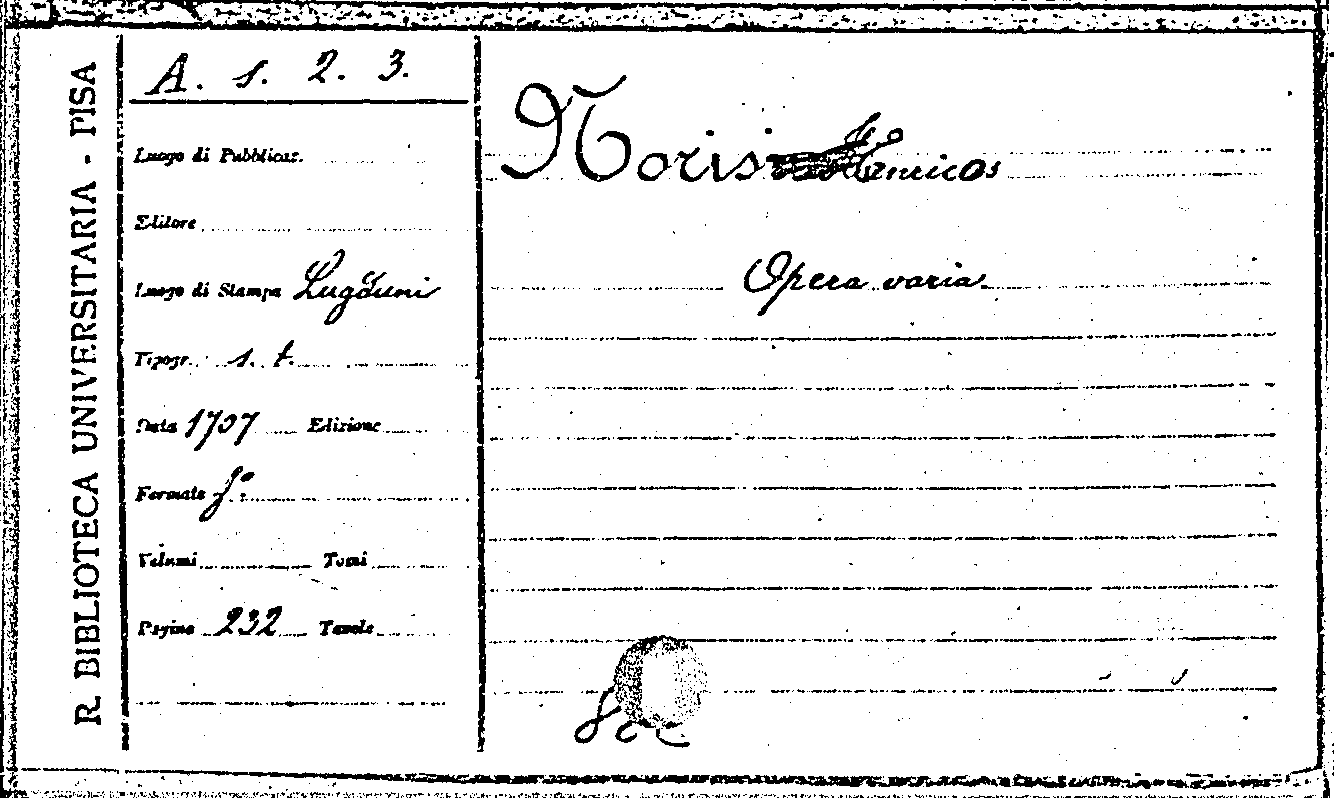 R. BIBLIOTECA UNIVERSITARIA - PISA
A. s. 2. 3.
Luogo di Pubblicaz.
Editore
Luogo di Stampa Lugduni
Tipogr. s. t.
Data 1707 Edizione
Formato f.º
Volumi Tomi
Pagine 232 Tavole
Noris
Opera varia